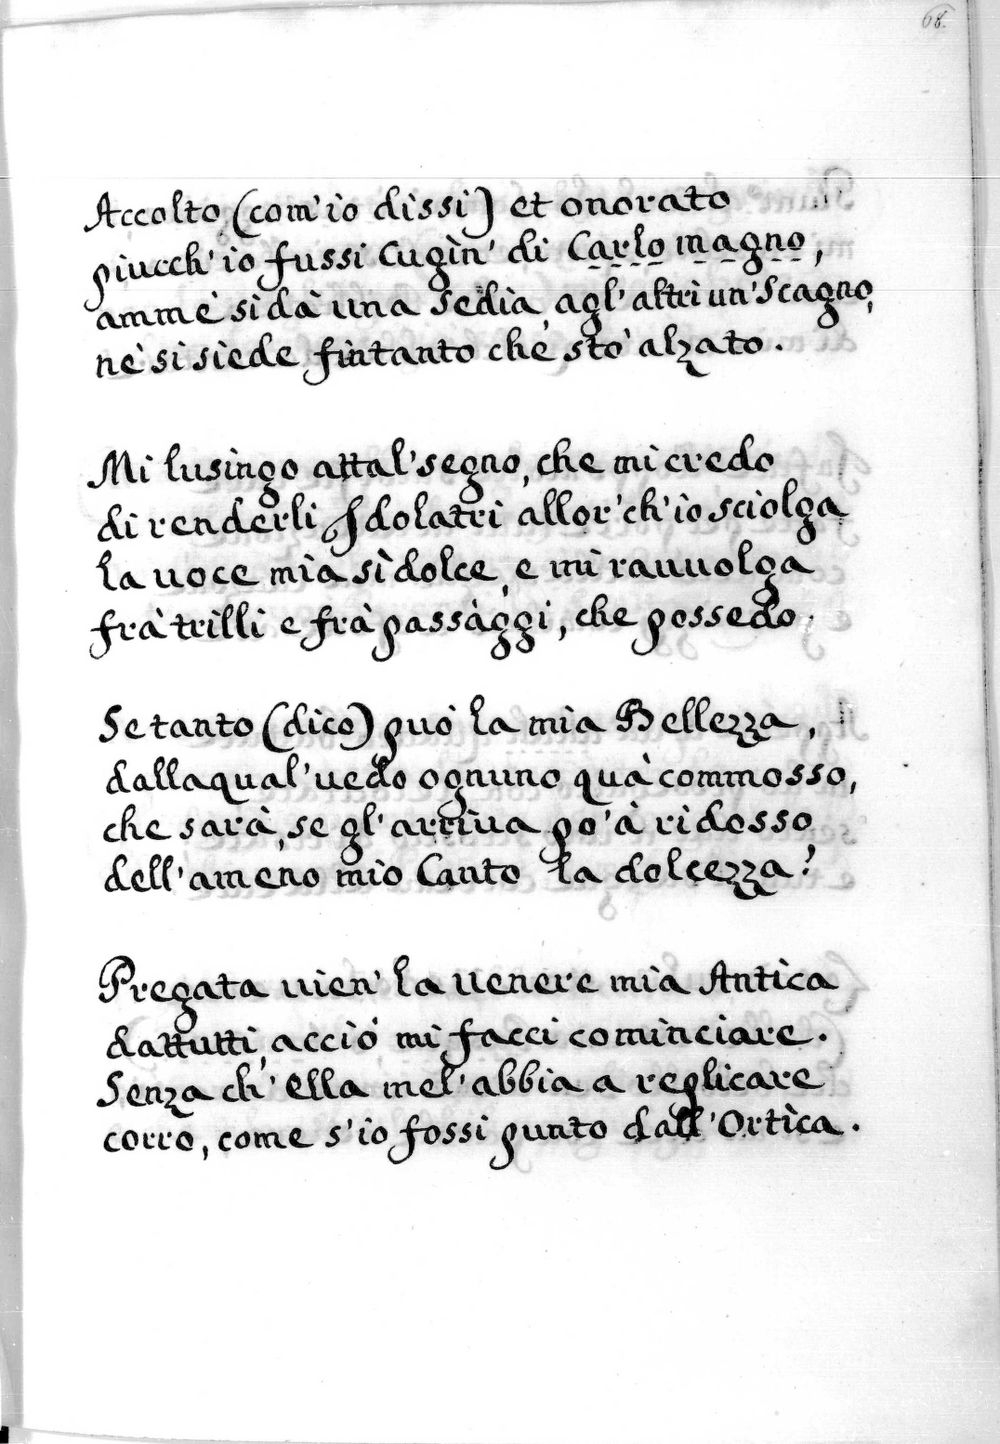 68.
Accolto (com'io dissi) et onorato
piucch'io fussi Cugin' di Carlo magno,
ammè si dà una sedia, agl'altri un'Scagno,
nè si siede fintanto chè stò alzato.
Mi lusingo attal'segno, che mi credo
di renderli Idolatri allor'ch'io sciolga
la uoce mia sì dolce, e mi rauuolga
frà trilli e frà passàggi, che possedo.
Se tanto (dico) può la mia Bellezza,
dallaqual'uedo ognuno quà commosso,
che sarà, se gl'arriua po'à ridosso
dell'ameno mio Canto la dolcezza?
Pregata uien' la Uenere mia Antica
dattutti, acciò mi facci cominciare.
Senza ch'ella mel'abbia a replicare
corro, come s'io fossi punto dall'Ortica.